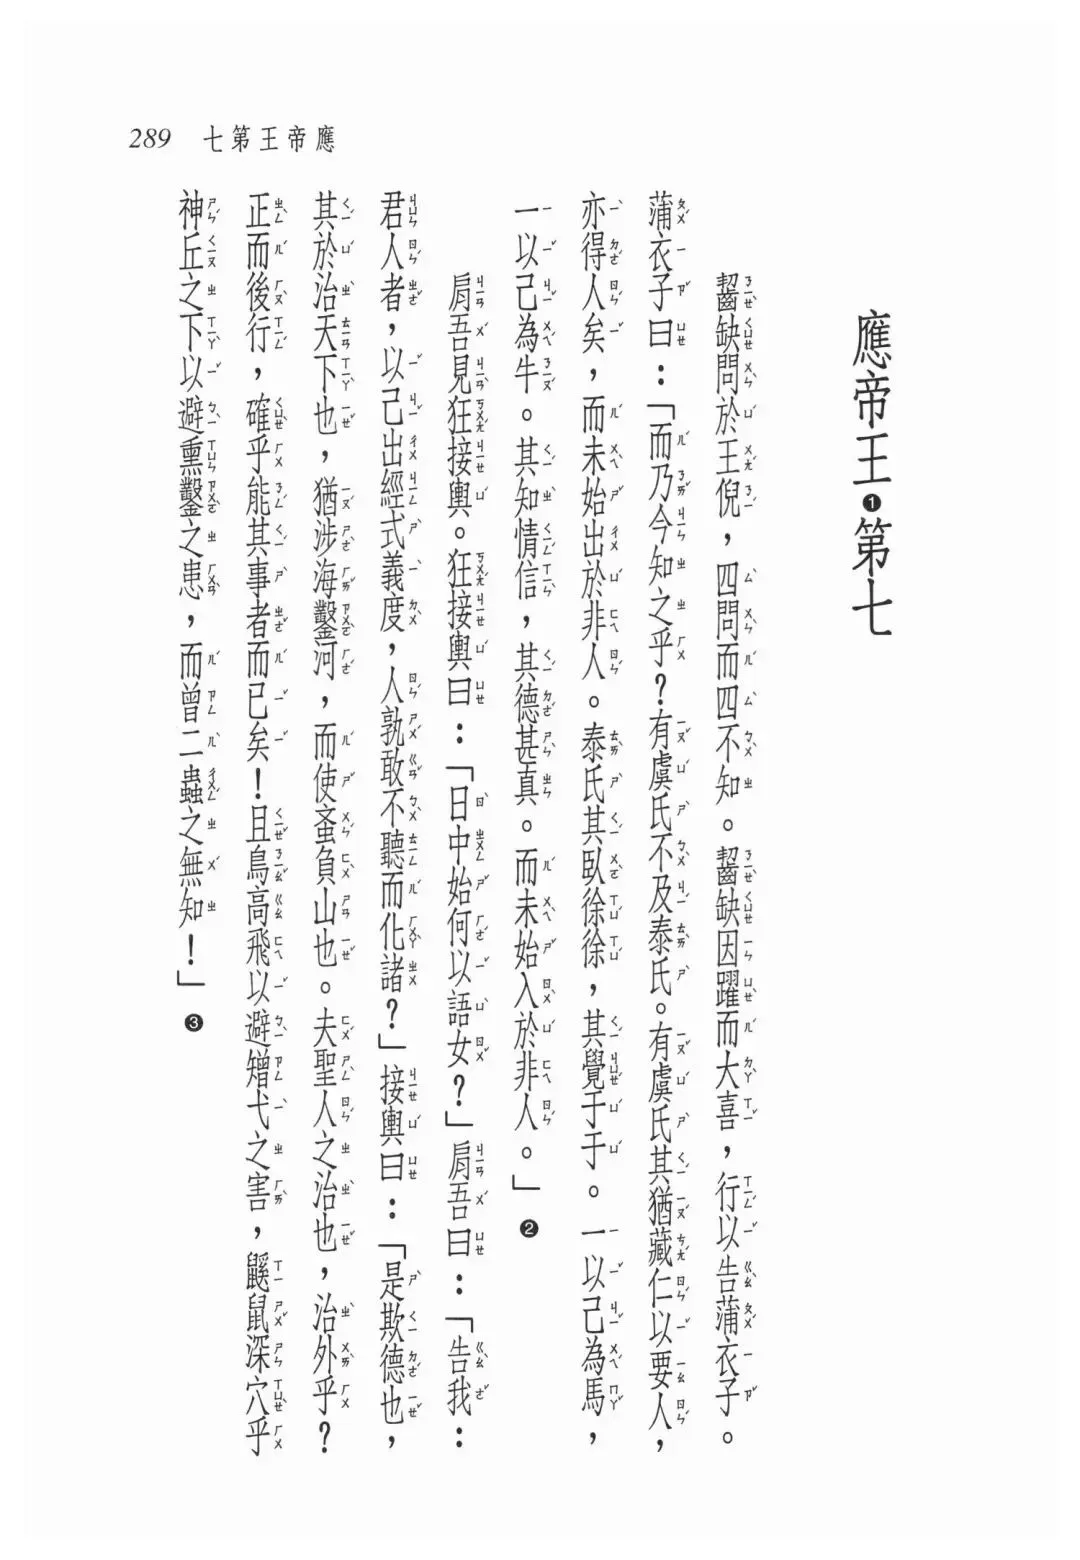 289 七第王帝應
應帝王❶第七
齧缺問於王倪，四問而四不知。齧缺因躍而大喜，行以告蒲衣子。
蒲衣子曰：「而乃今知之乎？有虞氏不及泰氏。有虞氏其猶藏仁以要人，
亦得人矣，而未始出於非人。泰氏其臥徐徐，其覺于于。一以己為馬，
一以己為牛。其知情信，其德甚真。而未始入於非人。」❷
肩吾見狂接輿。狂接輿曰：「日中始何以語女？」肩吾曰：「告我：
君人者，以己出經式義度，人孰敢不聽而化諸？」接輿曰：「是欺德也，
其於治天下也，猶涉海鑿河，而使蚉負山也。夫聖人之治也，治外乎？
正而後行，確乎能其事者而已矣！且鳥高飛以避矰弋之害，鼷鼠深穴乎
神丘之下以避熏鑿之患，而曾二蟲之無知！」❸